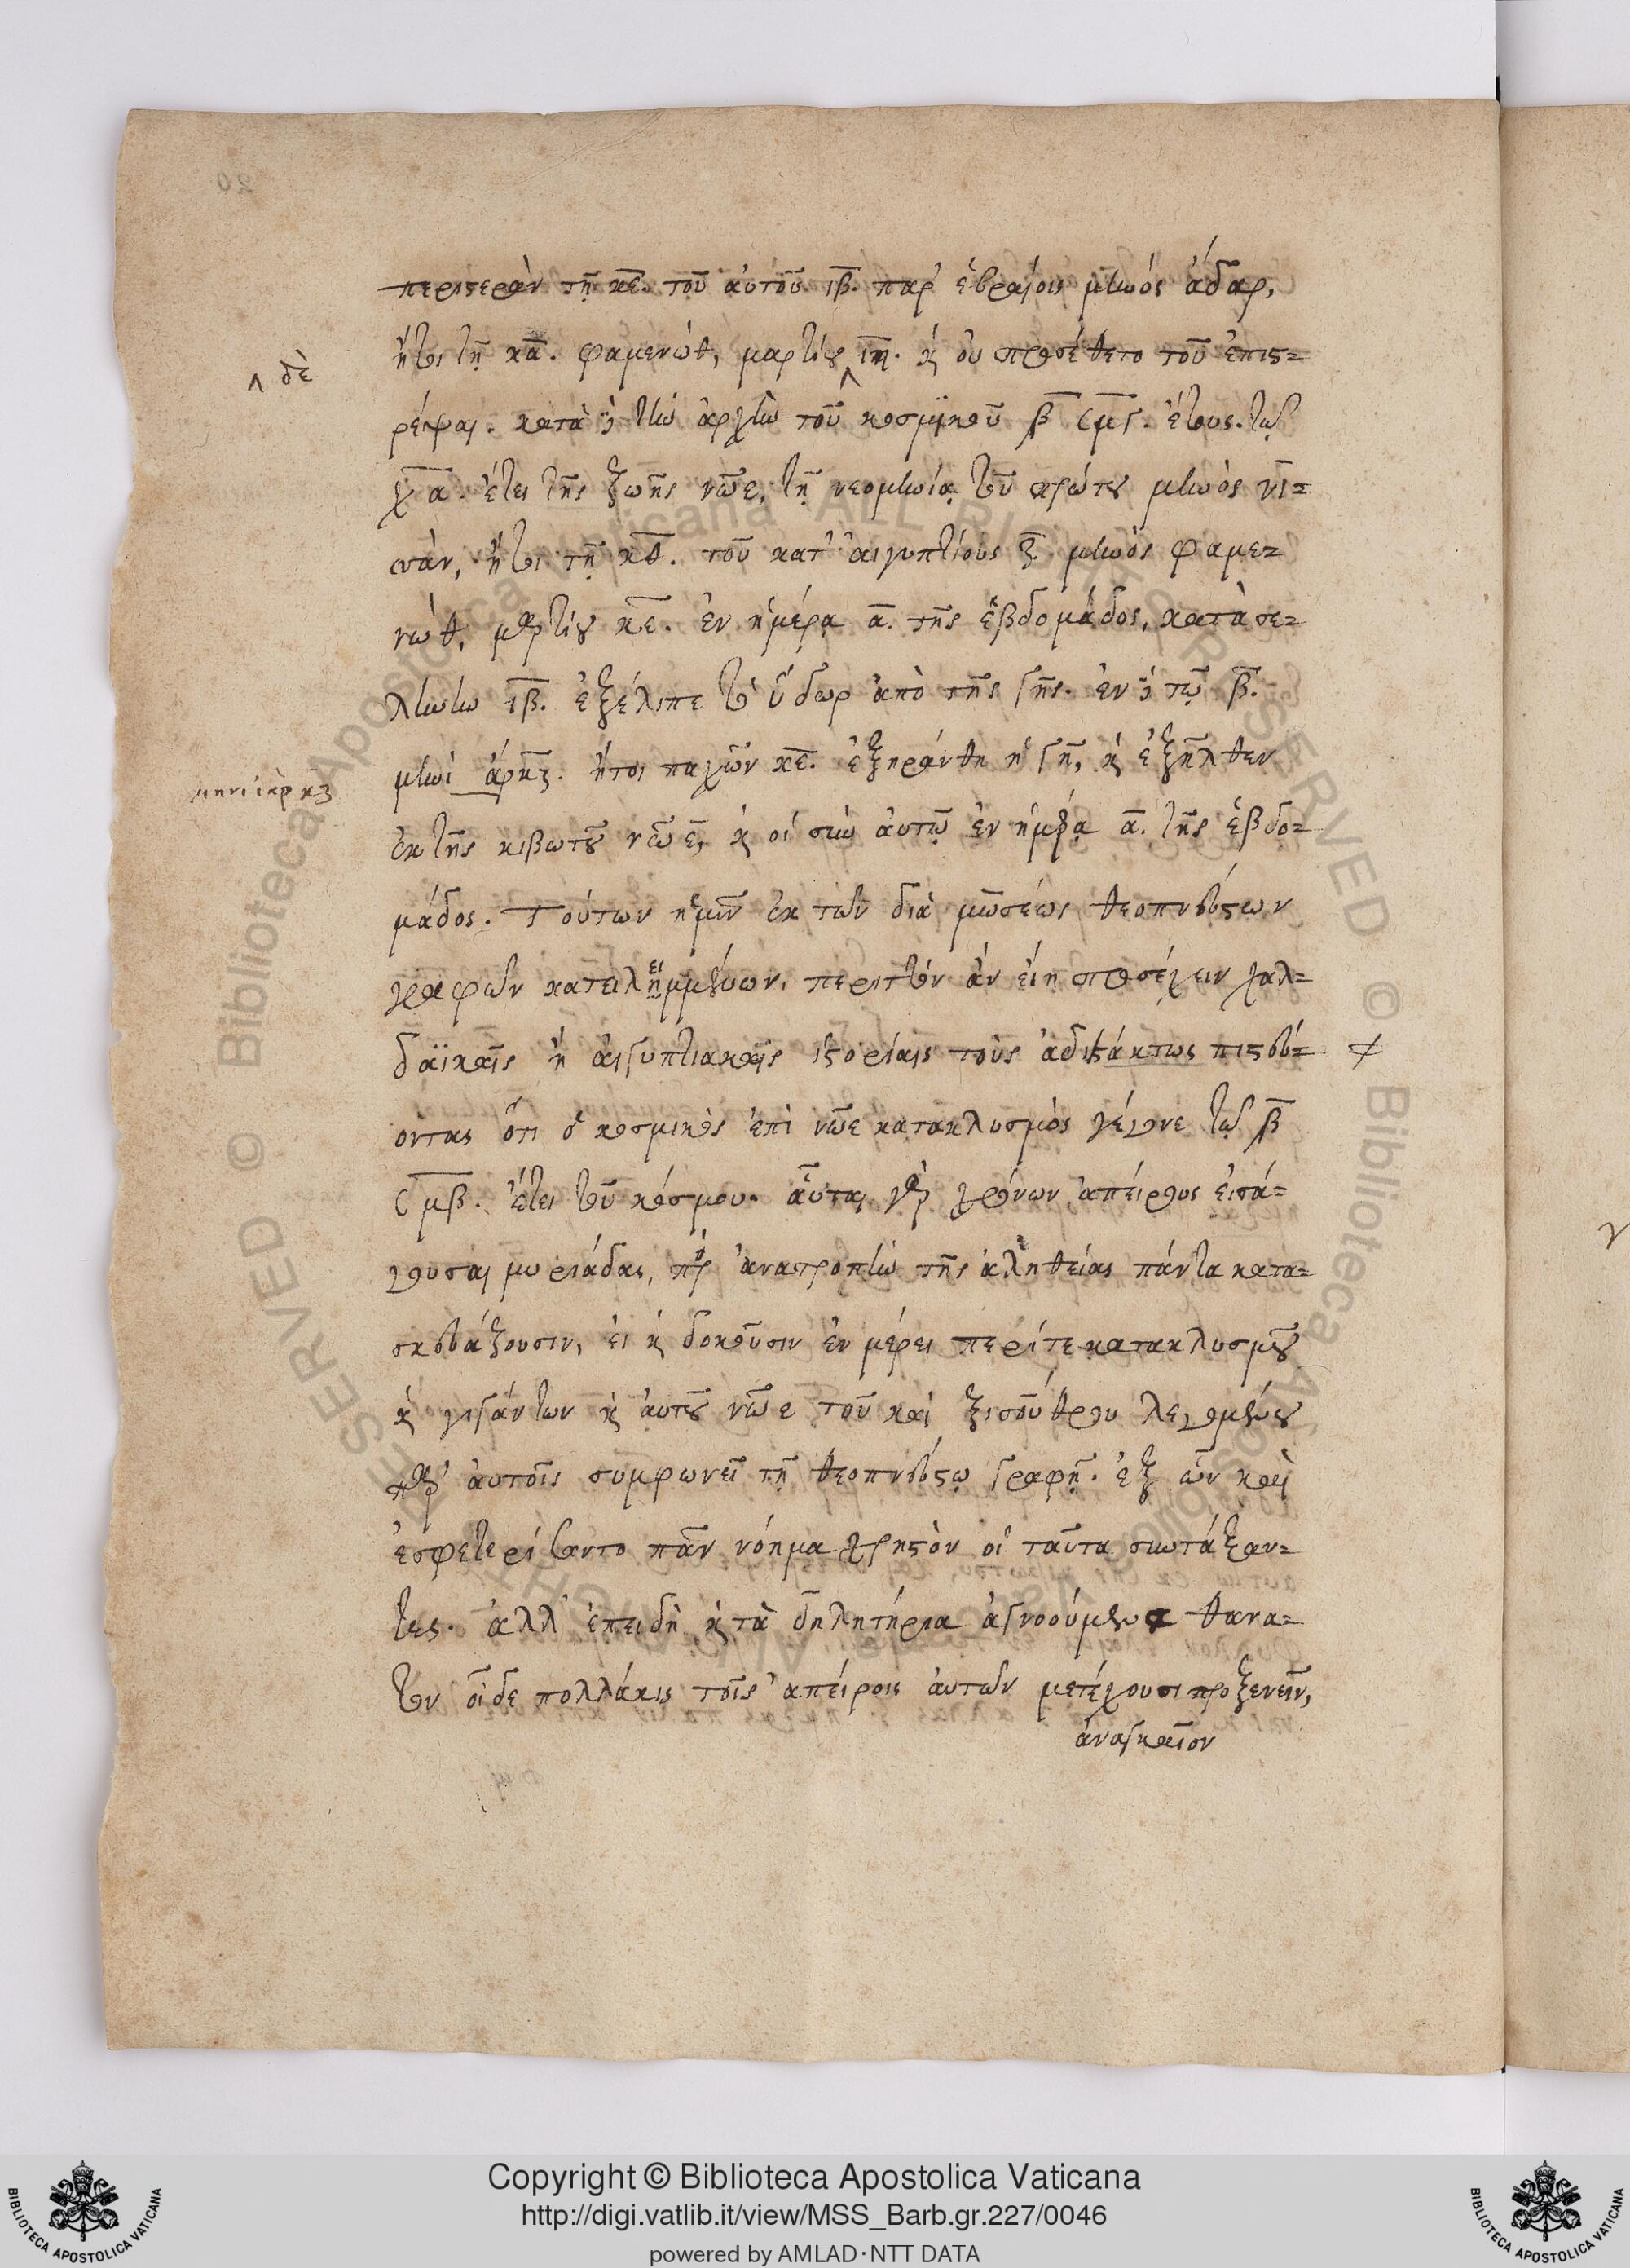 περιστερὰν τῇ κε. τοῦ αὐτοῦ ιβ. παρ' ἑβραίοις μηνὸς ἀδαρ,
ἤτοι τῇ κα. φαμενώθ, μαρτίου ιη. κ οὐ προσέθετο τοῦ ἐπισ=
^ δὲ
ρέψαι. κατὰ δὲ τὴν ἀρχὴν τοῦ κοσμικοῦ β ςμγ. ἔτους. τῷ
χα. ἔτει τῆς ζωῆς νῶε, τῇ νεομηνίᾳ τοῦ πρώτου μηνὸς νι=
σὰν, ἤτοι τῇ κθ. τοῦ κατ' αἰγυπτίους ζ. μηνὸς φαμε=
νὼθ, μαρτίου κε. ἐν ἡμέρᾳ α. τῆς ἑβδομάδος, κατὰ σε=
λήνην ιβ. ἐξέλιπε τὸ ὕδωρ ἀπὸ τῆς γῆς. ἐν δὲ τῷ β.
μηνὶ ἀρκζ. ἤτοι παχὼν κε. ἐξηράνθη ἡ γῆ, κ ἐξῆλθεν
μηνὶ ἰὰρ κζ
ἐκ τῆς κιβωτοῦ νῶε, κ οἱ σὺν αὐτῷ ἐν ἡμέρᾳ α. τῆς ἑβδο=
μάδος. Τούτων ἡμῖν ἐκ τῶν διὰ μωσέως θεοπνεύστων
γραφῶν κατειλημμένων, περιττὸν ἂν εἴη προσέχειν χαλ=
ει
δαϊκαῖς ἢ αἰγυπτιακαῖς ἱστορίαις τοὺς ἀδιστάκτως πιστεύ=
οντας ὅτι ὁ κοσμικὸς ἐπὶ νῶε κατακλυσμὸς γέγονε τῷ β
ςμβ. ἔτει τοῦ κόσμου. αὗται γὰρ χρόνων ἀπείρους εἰσά=
γουσαι μυριάδας, πρὸς ἀνατροπὴν τῆς ἀληθείας πάντα κατα=
σκευάζουσιν, εἰ κ δοκοῦσιν ἐν μέρει περίτε κατακλυσμοῦ
κ γιγάντων κ αὐτοῦ νῶε τοῦ καὶ ξισούθρου λεγομένου
παρ' αὐτοῖς συμφωνεῖ τῇ θεοπνεύστῳ γραφῇ. ἐξ ὧν καὶ
ἐσφετερίσαντο πᾶν νόημα χρηστὸν οἱ ταῦτα συντάξαν=
τες. ἀλλ' ἐπειδὴ κ τὰ δηλητήρια ἀγνοούμενα θανα=
τον οἶδε πολλάκις τοῖς ἀπείροις αὐτῶν μετέχουσι προξενεῖν,
ἀναγκαῖον
Copyright © Biblioteca Apostolica Vaticana
http://digi.vatlib.it/view/MSS_Barb.gr.227/0046
powered by AMLAD·NTT DATA